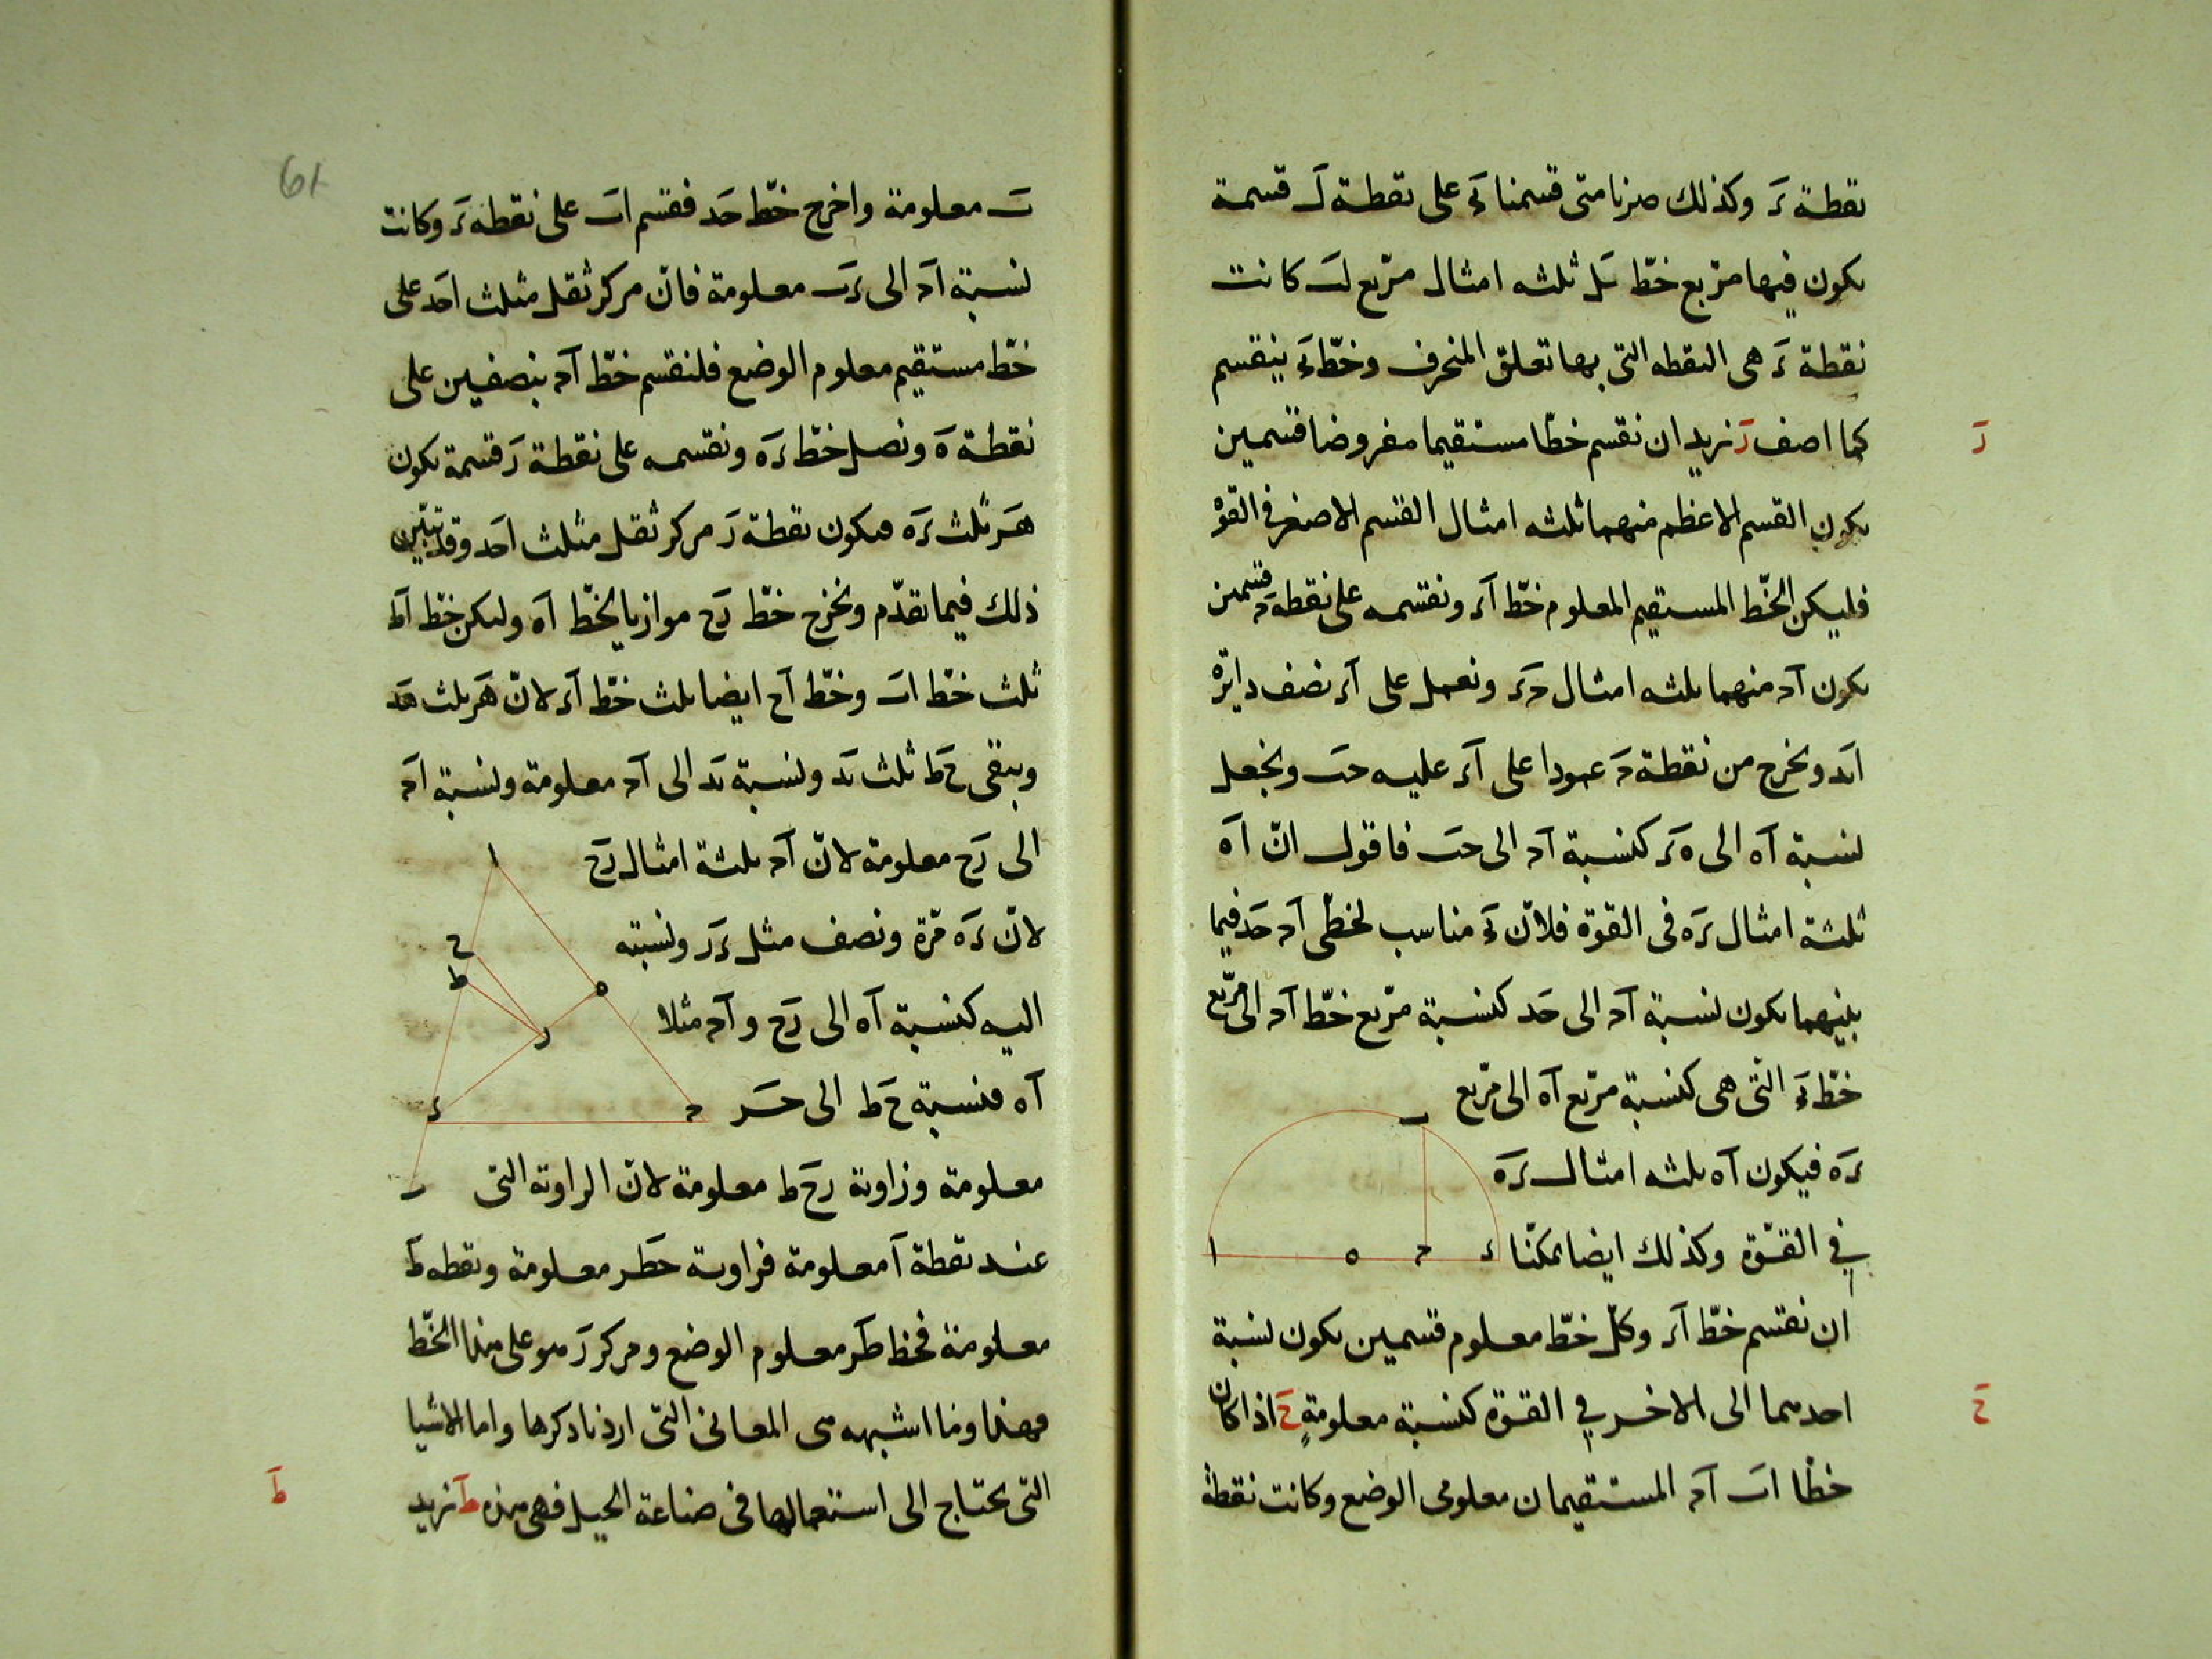 نقطة ءَ وكذلك صرنا متى قسمنا ءَ على نقطة لَ قسمة
يكون فيها مربع خطّ ثلثه امثال مربع لب كانت
نقطة ءَ هى النقطه التى بها تعلق المنحرف وخطّ ينقسم
كما اصف زَ نريد ان نقسم خطّا مستقيما مفروضا قسمين
زَ
يكون القسم الاعظم منهما ثلثه امثال القسم الاصغر فى القوّة
فليكن الخطّ المستقيم المعلوم خطّ اَد ونقسمه على نقطة حَ قسمين
يكون اَحـ منهما ثلثه امثال حَد ونعمل على اَد نصف دايرة
اَبد ونخرج من نقطة حَ عمودا على اَد عليه حب ونجعل
نسبة اَه الى هَد كنسبة اَحـ الى حب فاقول انّ اَه
ثلثة امثال دَه فى القوة فلانّ مناسب لخطّى اَحـ حَد فيما
بينهما يكون نسبة اَحـ الى حَد كنسبة مربع خطّ اَحـ الى مربّع
خطّ التى هى كنسبة مربع اَه الى مربّع
دَه فيكون اَه ثلثه امثال دَه
فى القوّة وكذلك ايضا يمكنّا
ب
ا ه حـ د
ان نقسم خطّ اَد وكلّ خطّ معلوم قسمين يكون نسبة
احدهما الى الاخر فى القوة كنسبة معلومةٍ حَ اذا كان
حَ
خطّا اب اَحـ المستقيمان معلومى الوضع وكانت نقطة
61
ب معلومة واخرج خطّ حَد فقسم اب على نقطه دَ وكانت
نسبة اَد الى دَب معلومة فانّ مركز ثقل مثلث اَحَد على
خطّ مستقيم معلوم الوضع فلنقسم خطّ اَحـ بنصفين على
نقطة هَ ونصل خطّ دَه ونقسمه على نقطة زَ قسمة يكون
هَز ثلث دَه فيكون نقطة زَ مركز ثقل مثلث اَحَد وقد تبيّن
ذلك فيما تقدّم ونخرج خطّ زَح موازيا لخطّ اَه وليكن خطّ اَط
ثلث خطّ اب وخطّ اَح ايضا ثلث خطّ اَد لانّ هَز ثلث هَد
ويبقى حَط ثلث بَد ونسبة بَد الى اَحـ معلومة ونسبة اَحـ
الى زَح معلومة لانّ اَحـ ثلثة امثال زَح
لانّ دَه مرّة ونصف مثل دَز ونسبته
اليه كنسبة اَه الى زَح واَحـ مثلا
اَه فنسبة حَط الى حَز
معلومة وزاوية زَحط معلومة لانّ الزاوية التى
ا
ح
ط
ه
ز
د حـ
ب
عند نقطة اَ معلومة فزاوية حَطز معلومة ونقطه طَ
معلومة فخط طَز معلوم الوضع ومركز زَ هو على هذا الخّط
فهذا وما اشبهه هى المعانى التى اردنا ذكرها واما الاشيا
التى يحتاج الى استعمالها فى صناعة الحيل فهى هذه طَ نريد
طَ